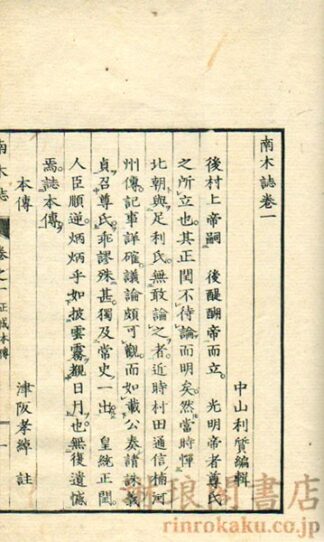 南木誌卷一
中山利質編輯
後村上帝嗣　後醍醐帝而立。　光明帝者尊氏
之所立也。其正閏不待論而明矣。然當時憚
北朝與足利氏。無敢論之者。近時村田通信楠河
州傳。記事詳確。議論頗可觀。而如載公奏請誅義
貞召尊氏。乖謬殊甚。獨及常史一出。　皇統正閏
人臣順逆。炳炳乎如披雲霧覩日月也。無復遺憾
焉。誌本傳。
本傳　津阪孝綽　註
南木誌　卷之一　正成本傳　一
琳琅閣書店
rinrokaku.co.jp